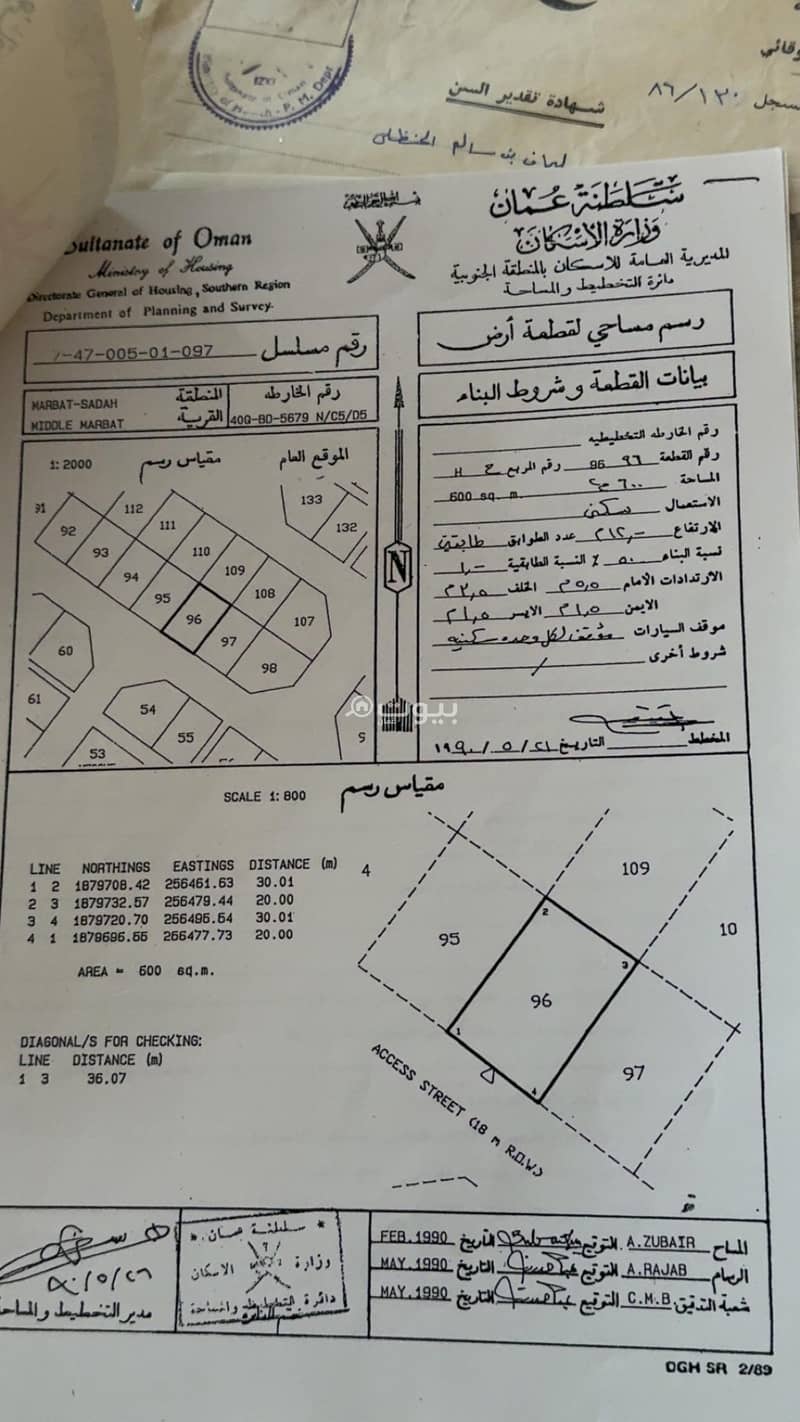 وقائي
سجل ٨٦/١٢٠
شهادة تقدير السن
سلطنة عمان
وزارة الاسكان
المديرية العامة للاسكان بالمنطقة الجنوبية
دائرة التخطيط والمساحة
Sultanate of Oman
Ministry of Housing
Directorate General of Housing, Southern Region
Department of Planning and Survey
رسم مساحي لقطعة أرض
رقم مسلسل -47-005-01-097
بيانات القطعة وشروط البناء
MARBAT-SADAH المنطقة
MIDDLE MARBAT القرية
رقم الخارطه
40Q-BD-5679 N/C5/D5
رقم الخارطه التخطيطيه
رقم القطعة ٩٦ 96 رقم المربع ح H
المساحة ٦٠٠ م٢
600 sq. m.
الاستعمال سكني
الارتفاع عدد الطوابق طابقين
نسبة البناء ٥٠ ٪ النسبة الطابقية ١٠٠
الارتدادات الامام ٥٫٥م الخلف ٣٫٥م
الايمن ١٫٥م الايسر ١٫٥م
موقف السيارات موقف لكل وحده سكنيه
شروط أخرى /
المخطط التاريخ ١٩٩٠/٥/٢١
الموقع العام
مقياس رسم
1: 2000
91
92
93
94
95
96
97
98
112
111
110
109
108
107
133
132
60
61
54
55
53
N
بيوت
SCALE 1: 800 مقياس رسم
LINE NORTHINGS EASTINGS DISTANCE (m)
1 2 1879708.42 256461.63 30.01
2 3 1879732.57 256479.44 20.00
3 4 1879720.70 256495.54 30.01
4 1 1879696.55 256477.73 20.00
AREA = 600 sq.m.
DIAGONAL/S FOR CHECKING:
LINE DISTANCE (m)
1 3 36.07
4
109
95
10
96
97
1
2
3
4
ACCESS STREET (18 m R.O.W.)
المساح A.ZUBAIR التوقيع التاريخ FEB.1990
الرسام A.RAJAB التوقيع التاريخ MAY.1990
شعبة التدقيق C.M.B. التوقيع التاريخ MAY.1990
* سلطنة عمان *
وزارة الاسكان
دائرة التخطيط والمساحة
مدير التخطيط والمساحة
DGH SR 2/89